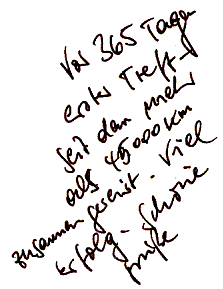 Vor 365 Tagen
erstes Treff-
seit dem mehr
als 45000 km
zusammen gereist. Viel
Erfolg. Schöne
Grüße